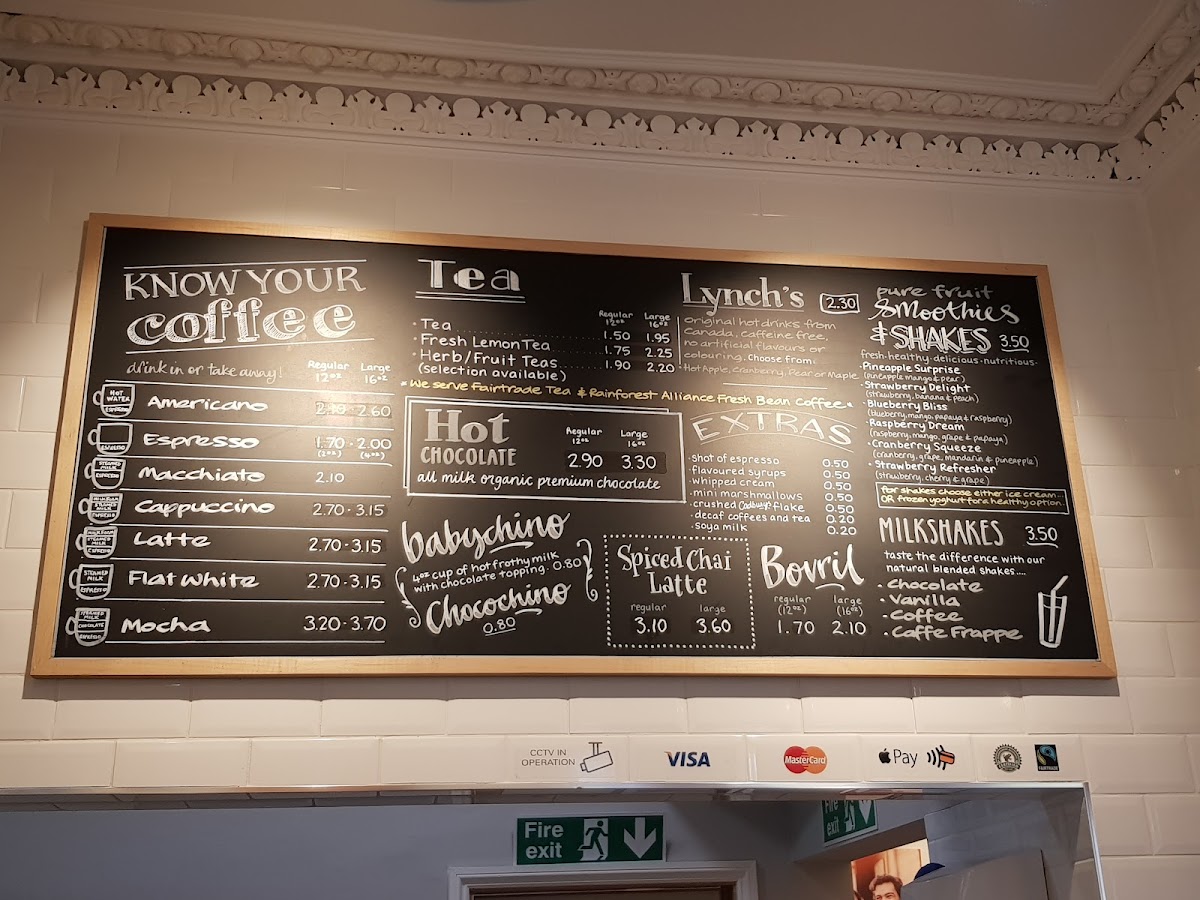 KNOW YOUR
coffee
drink in or take away!
Regular Large
12oz 16oz
HOT
WATER
ESPRESSO
Americano 2.10 2.60
ESPRESSO
Espresso 1.70 - 2.00
(2oz) (4oz)
STEAMED
MILK
ESPRESSO
Macchiato 2.10
Cappuccino 2.70 - 3.15
Latte 2.70 - 3.15
STEAMED
MILK
ESPRESSO
Flat White 2.70 - 3.15
STEAMED
MILK
CHOCOLATE
ESPRESSO
Mocha 3.20 - 3.70
Tea
Regular Large
12oz 16oz
· Tea 1.50 1.95
· Fresh Lemon Tea 1.75 2.25
· Herb/Fruit Teas 1.90 2.20
(selection available)
• We serve Fairtrade Tea & Rainforest Alliance Fresh Bean Coffee •
Hot
CHOCOLATE
Regular Large
12oz 16oz
2.90 3.30
all milk organic premium chocolate
babychino
4oz cup of hot frothy milk
with chocolate topping. 0.80
Chocochino
0.80
Lynch's 2.30
original hot drinks from
Canada, caffeine free,
no artificial flavours or
colouring. Choose from:
· Hot Apple, Cranberry, Pear or Maple
EXTRAS
· shot of espresso 0.50
· flavoured syrups 0.50
· whipped cream 0.50
· mini marshmallows 0.50
· crushed Cadburys flake 0.50
· decaf coffees and tea 0.20
· soya milk 0.20
Spiced Chai
Latte
regular large
3.10 3.60
Bovril
regular large
(12oz) (16oz)
1.70 2.10
pure fruit
Smoothies
& SHAKES 3.50
fresh·healthy·delicious·nutritious·
· Pineapple Surprise
(pineapple, mango & pear)
· Strawberry Delight
(strawberry, banana & peach)
· Blueberry Bliss
(blueberry, mango, papaya & raspberry)
· Raspberry Dream
(raspberry, mango, grape & papaya)
· Cranberry Squeeze
(cranberry, grape, mandarin & pineapple)
· Strawberry Refresher
(strawberry, cherry & grape)
for shakes choose either ice cream...
OR frozen yoghut for a healthy option.
MILKSHAKES 3.50
taste the difference with our
natural blended shakes....
· Chocolate
· Vanilla
· Coffee
· Caffe Frappe
CCTV IN
OPERATION
VISA
MasterCard
Pay
FAIRTRADE
Fire
exit
Fire
exit